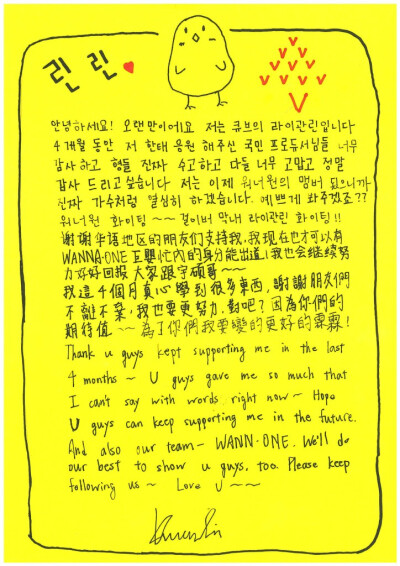 린린
안녕하세요! 오랜만이에요 저는 큐브의 라이관린입니다
4개월 동안 저 한태 응원 해주신 국민 프로듀서님들 너무
감사 하고 형들 진짜 수고하고 다들 너무 고맙고 정말
감사 드리고 싶습니다 저는 이제 워너원의 멤버 됬으니까
진짜 가수처럼 열심히 하겠습니다. 예쁘게 봐주겠죠??
워너원 화이팅~~ 걸어버 막내 라이관린 화이팅!!
謝謝华语地区的朋友们支持我,我现在也才可以有
WANNA·ONE 忙内的身分能出道!我也会继续努
力好好回报大家跟宇硕哥~~
我這4個月真心學到很多東西,謝謝朋友們
不離不棄,我也要更努力,對吧?因為你們的
期待值~~為了你們我要變的更好的霖霖!
Thank u guys kept supporting me in the last
4 months~ U guys gave me so much that
I can't say with words right now~ Hope
U guys can keep supporting me in the future.
And also our team- WANN·ONE. We'll do
our best to show u guys, too. Please keep
following us~ Love U~~